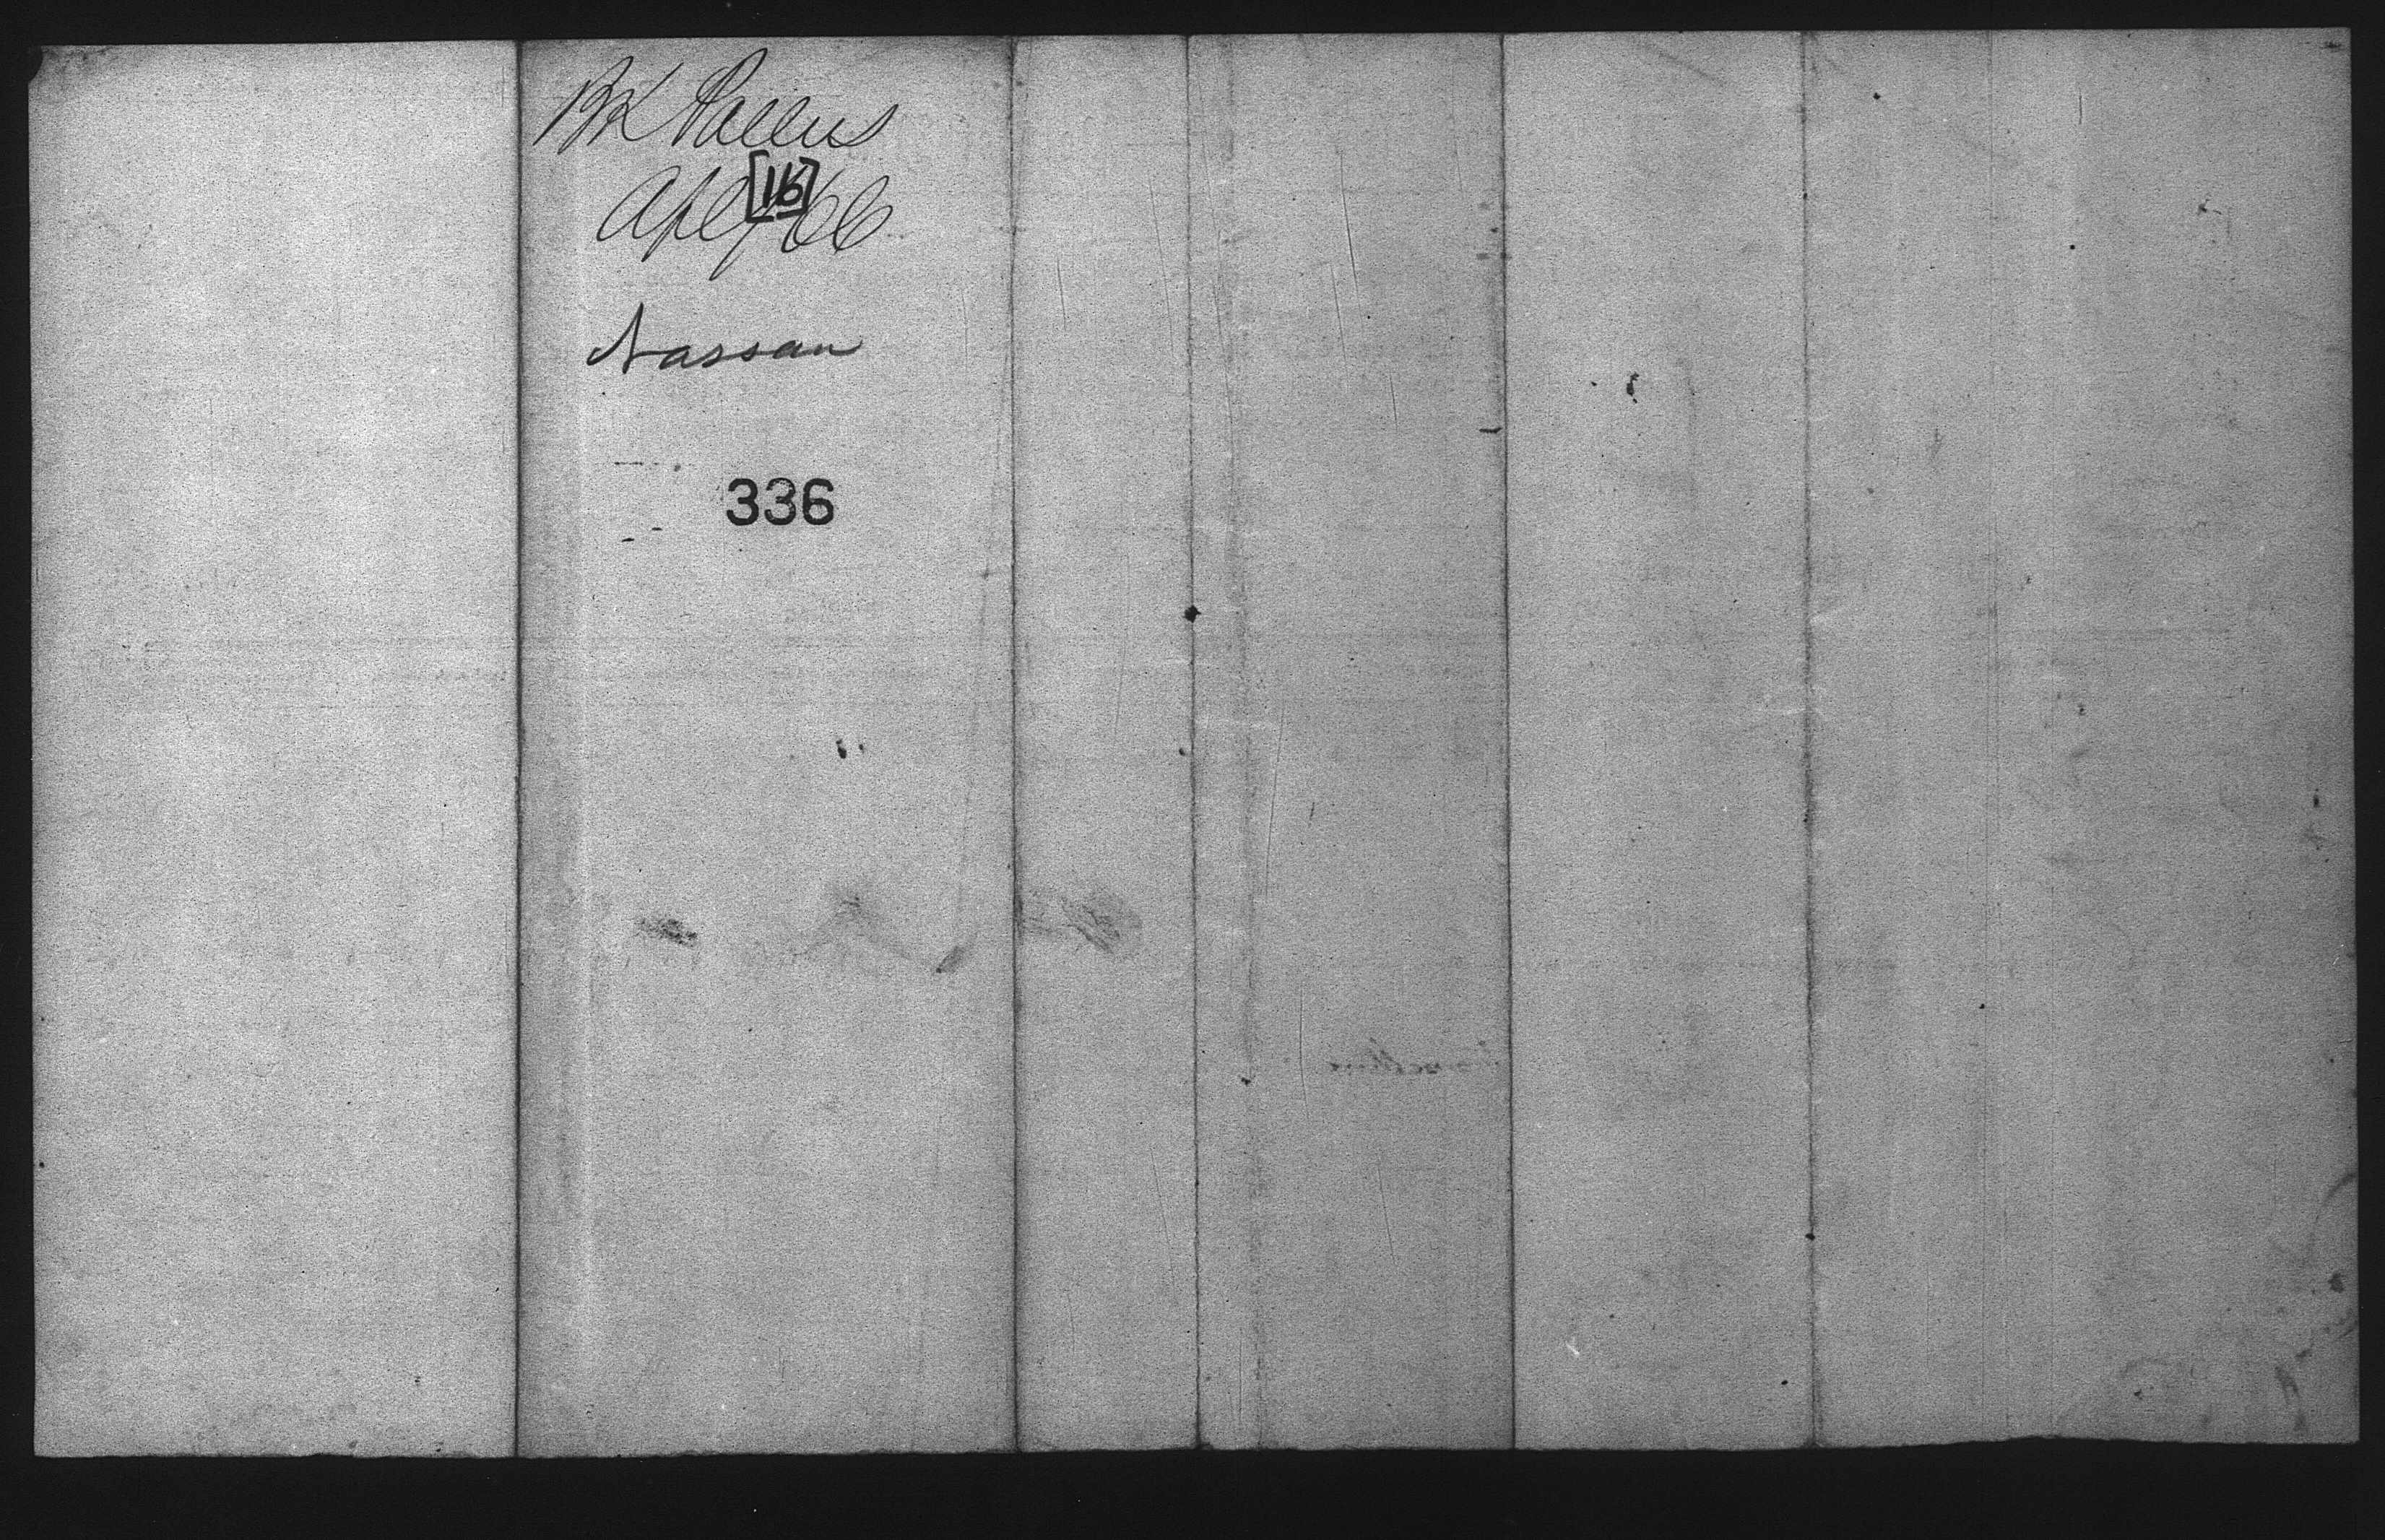 Bk Pallus
Apl 7/66
[16]
Nassau
336